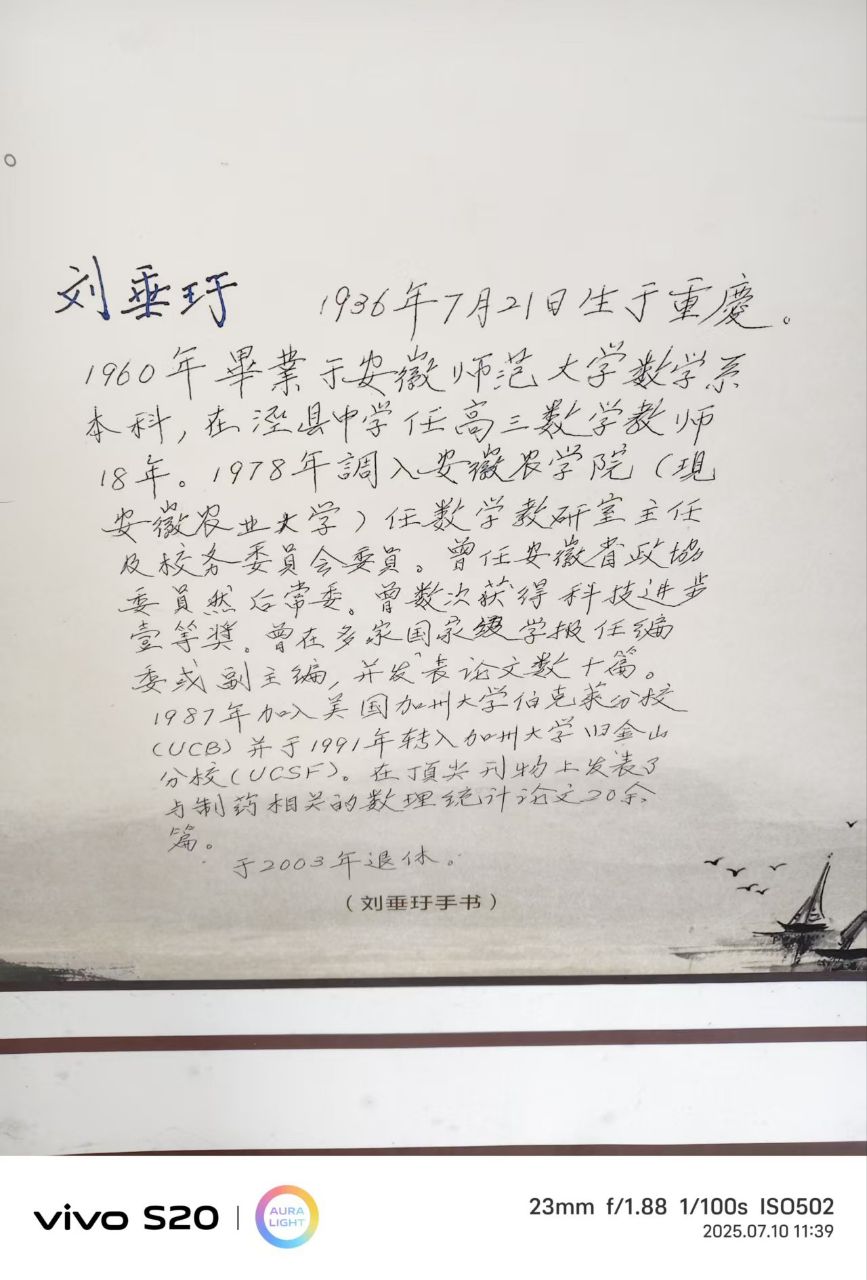 刘垂玗 1936年7月21日生于重慶。
1960年畢業于安徽师范大学数学系
本科,在泾县中学任高三数学教师
18年。1978年調入安徽农学院(現
安徽农业大学)任数学教研室主任
及校务委員会委員。曾任安徽省政協
委員然后常委。曾数次获得科技进步
壹等奖。曾在多家国家级学报任编
委或副主编,并发表论文数十篇。
1987年加入美国加州大学伯克莱分校
(UCB)并于1991年转入加州大学旧金山
分校(UCSF)。在頂尖刊物上发表了
与制药相关的数理统计论文20余
篇。
于2003年退休。
(刘垂玗手书)
vivo S20 AURA LIGHT 23mm f/1.88 1/100s ISO502
2025.07.10 11:39